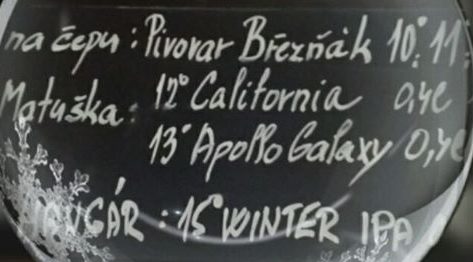 na čepu : Pivovar Březňák 10° 11°
Matuška : 12° California 0,4l
13° Apollo Galaxy 0,4l
: 15° WINTER IPA